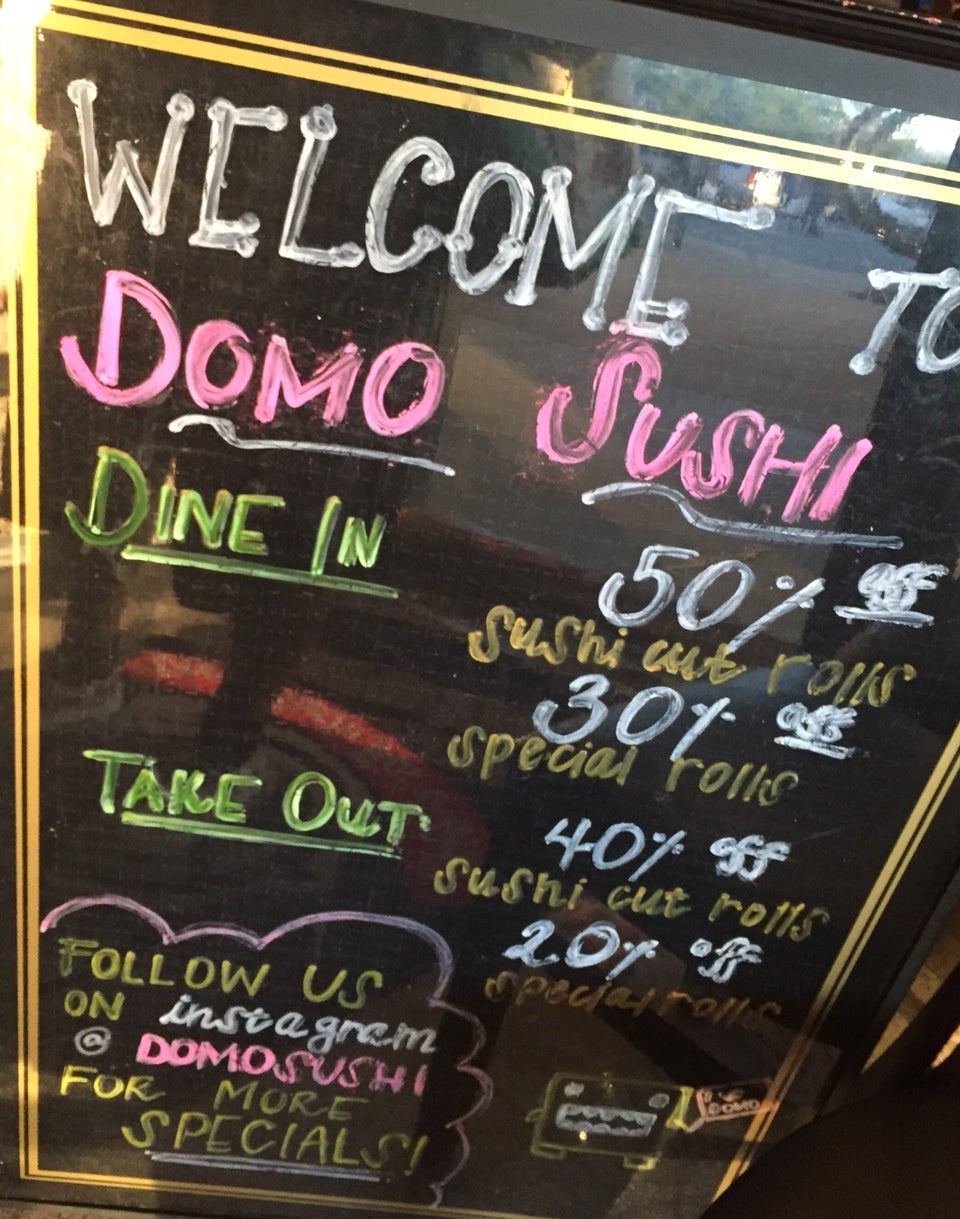 WELCOME TO
DOMO SUSHI
DINE IN
50% off
sushi cut rolls
30% off
special rolls
TAKE OUT
40% off
sushi cut rolls
20% off
special rolls
FOLLOW US
ON instagram
@ DOMOSUSHI
FOR MORE
SPECIALS!
DOMO